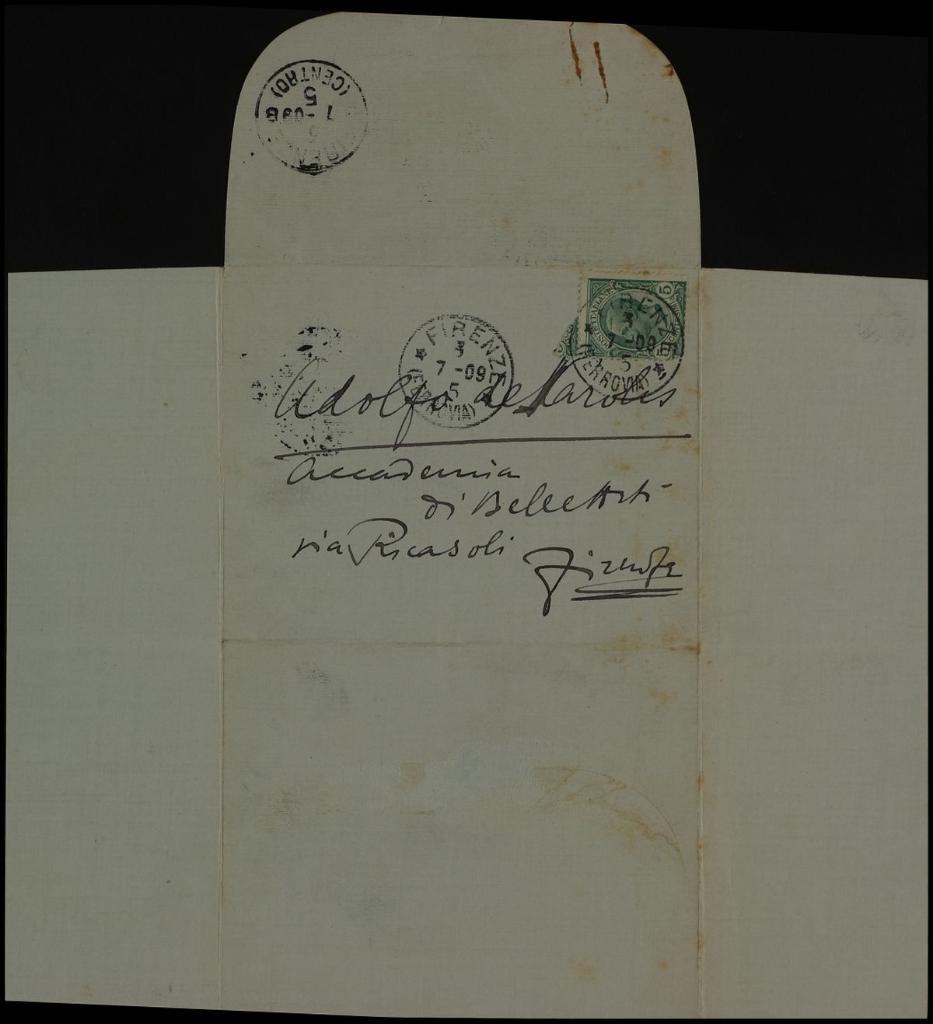 FIRENZE
7 - 09 B
5
(CENTRO)
FIRENZE
3
7 - 09
5
(FERROVIA)
FIRENZE
3
7 - 09
5
(FERROVIA)
5
Adolfo de Karolis
Accademia
di Belle Arti
via Ricasoli
Firenze